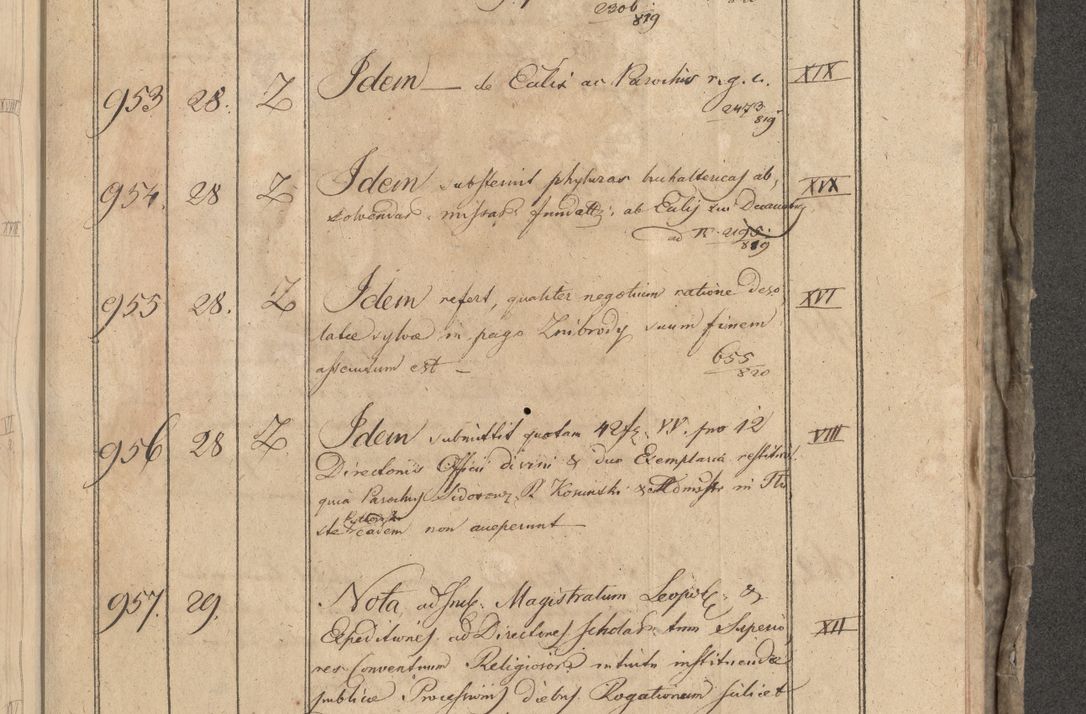 2306
819
953 28. Z Idem — de Eccliis ac Parochiis r. g. c. XIX
2473
819
954. 28 Z Idem substernit phyluras buhaltericas ab, XIX
solvendas missas fundat. ab Ecclis
ad N. 2195.
819
955 28. Z Idem refert, qualiter negotium ratione deso, XVI
latae sylvae in pago Znibrody suum finem
assecutum est —
655
820
956 28 Z Idem submittit quotam 42 f pro 12 VIII
Directoriis Officii divini & duo Exemplaria restituit
quia Parochus R. Kosinski & Administr in
ste eadem non acceperunt —
957. 29. Nota ad Incl. Magistratum Leopol. & XII
Expeditiones ad Directores scholar. tum Superio,
res Conventuum Religiosor. intuitu instituendae
publicae Processionis diebus Rogationum scilicet